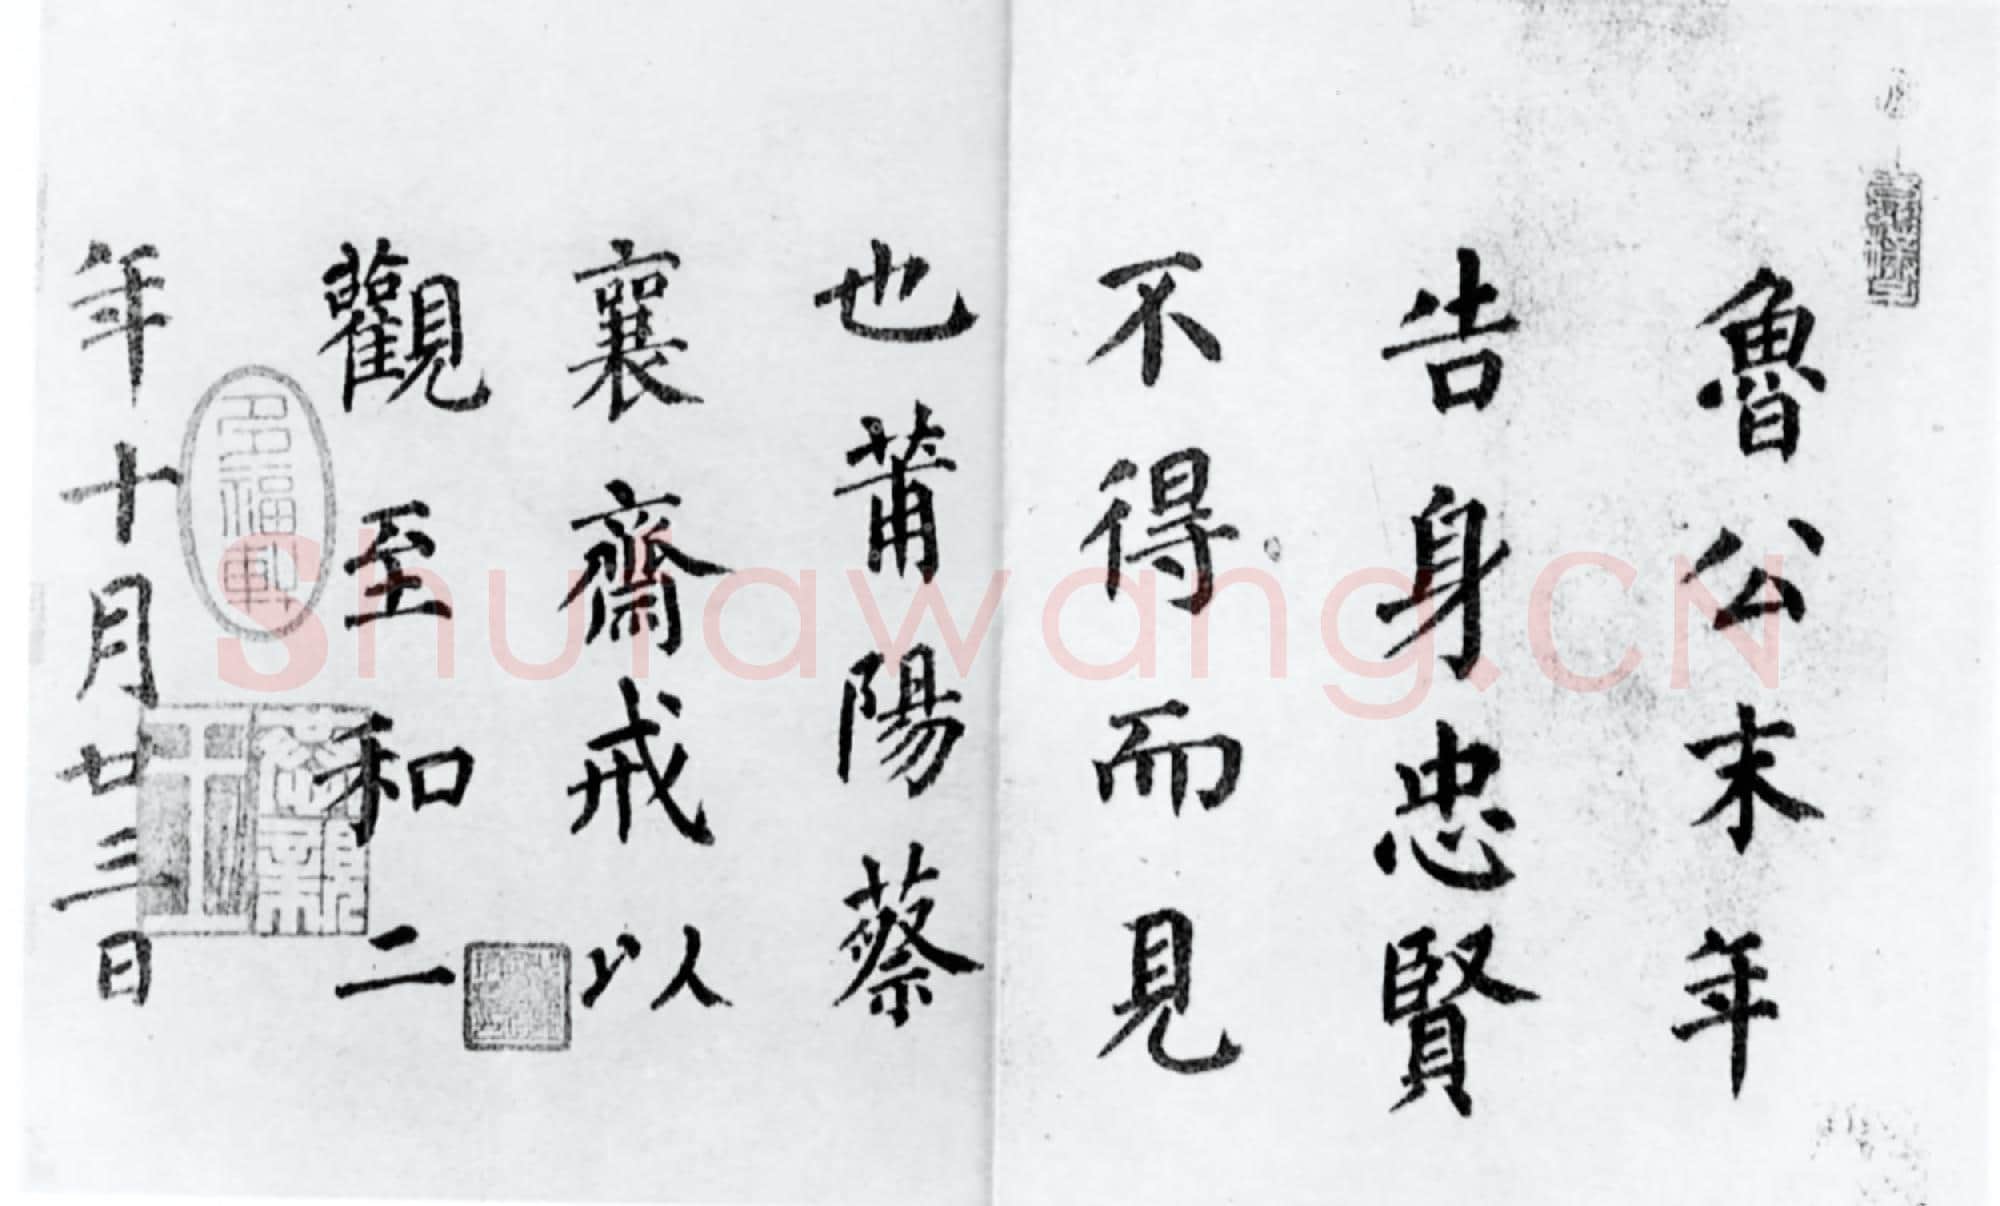 魯公末年
告身忠賢
不得而見
也莆陽蔡
襄齋戒以
觀至和二
年十月廿三日
多福軒
Shufawang.CN